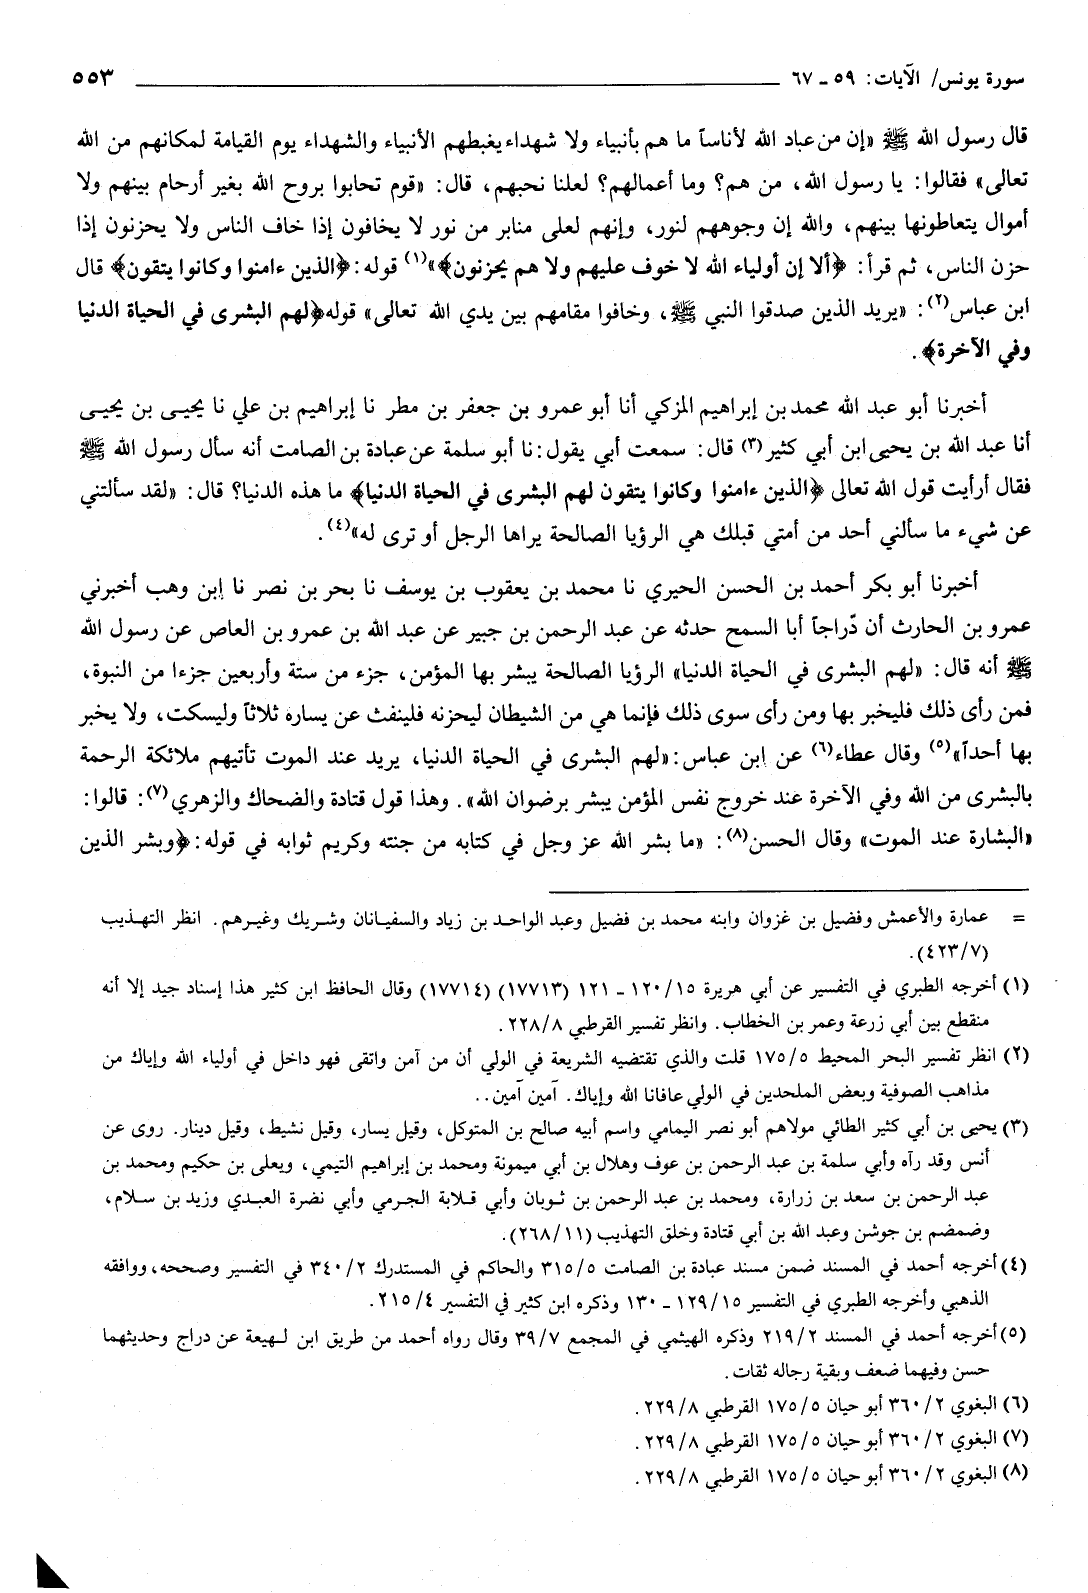 سورة يونس/ الآيات: ٥٩ ـ ٦٧ ٥٥٣
قال رسول الله ﷺ «إن من عباد الله لأناساً ما هم بأنبياء ولا شهداء يغبطهم الأنبياء والشهداء يوم القيامة لمكانهم من الله
تعالى» فقالوا: يا رسول الله، من هم؟ وما أعمالهم؟ لعلنا نحبهم، قال: «قوم تحابوا بروح الله بغير أرحام بينهم ولا
أموال يتعاطونها بينهم، والله إن وجوههم لنور، وإنهم لعلى منابر من نور لا يخافون إذا خاف الناس ولا يحزنون إذا
حزن الناس، ثم قرأ: ﴿ألا إن أولياء الله لا خوف عليهم ولا هم يحزنون﴾»(١) قوله: ﴿الذين ءامنوا وكانوا يتقون﴾ قال
ابن عباس(٢): «يريد الذين صدقوا النبي ﷺ، وخافوا مقامهم بين يدي الله تعالى» قوله ﴿لهم البشرى في الحياة الدنيا
وفي الآخرة﴾.
أخبرنا أبو عبد الله محمد بن إبراهيم المزكي أنا أبو عمرو بن جعفر بن مطر نا إبراهيم بن علي نا يحيى بن يحيى
أنا عبد الله بن يحيى ابن أبي كثير(٣) قال: سمعت أبي يقول: نا أبو سلمة عن عبادة بن الصامت أنه سأل رسول الله ﷺ
فقال أرأيت قول الله تعالى ﴿الذين ءامنوا وكانوا يتقون لهم البشرى في الحياة الدنيا﴾ ما هذه الدنيا؟ قال: «لقد سألتني
عن شيء ما سألني أحد من أمتي قبلك هي الرؤيا الصالحة يراها الرجل أو ترى له»(٤).
أخبرنا أبو بكر أحمد بن الحسن الحيري نا محمد بن يعقوب بن يوسف نا بحر بن نصر نا إبن وهب أخبرني
عمرو بن الحارث أن دّراجاً أبا السمح حدثه عن عبد الرحمن بن جبير عن عبد الله بن عمرو بن العاص عن رسول الله
ﷺ أنه قال: «لهم البشرى في الحياة الدنيا» الرؤيا الصالحة يبشر بها المؤمن، جزء من ستة وأربعين جزءا من النبوة،
فمن رأى ذلك فليخبر بها ومن رأى سوى ذلك فإنما هي من الشيطان ليحزنه فلينفث عن يساره ثلاثاً وليسكت، ولا يخبر
بها أحداً»(٥) وقال عطاء(٦) عن إبن عباس: «لهم البشرى في الحياة الدنيا، يريد عند الموت تأتيهم ملائكة الرحمة
بالبشرى من الله وفي الآخرة عند خروج نفس المؤمن يبشر برضوان الله». وهذا قول قتادة والضحاك والزهري(٧): قالوا:
«البشارة عند الموت» وقال الحسن(٨): «ما بشر الله عز وجل في كتابه من جنته وكريم ثوابه في قوله: ﴿وبشر الذين
= عمارة والأعمش وفضيل بن غزوان وابنه محمد بن فضيل وعبد الواحد بن زياد والسفيانان وشريك وغيرهم. انظر التهذيب
(٤٢٣/٧).
(١) أخرجه الطبري في التفسير عن أبي هريرة ١٢٠/١٥ ـ ١٢١ (١٧٧١٣) (١٧٧١٤) وقال الحافظ ابن كثير هذا إسناد جيد إلا أنه
منقطع بين أبي زرعة وعمر بن الخطاب. وانظر تفسير القرطبي ٢٢٨/٨.
(٢) انظر تفسير البحر المحيط ١٧٥/٥ قلت والذي تقتضيه الشريعة في الولي أن من آمن واتقى فهو داخل في أولياء الله وإياك من
مذاهب الصوفية وبعض الملحدين في الولي عافانا الله وإياك. آمين آمين..
(٣) يحيى بن أبي كثير الطائي مولاهم أبو نصر اليمامي واسم أبيه صالح بن المتوكل، وقيل يسار، وقيل نشيط، وقيل دينار. روى عن
أنس وقد رآه وأبي سلمة بن عبد الرحمن بن عوف وهلال بن أبي ميمونة ومحمد بن إبراهيم التيمي، ويعلى بن حكيم ومحمد بن
عبد الرحمن بن سعد بن زرارة، ومحمد بن عبد الرحمن بن ثوبان وأبي قلابة الجرمي وأبي نضرة العبدي وزيد بن سلام،
وضمضم بن جوشن وعبد الله بن أبي قتادة وخلق التهذيب (٢٦٨/١١).
(٤) أخرجه أحمد في المسند ضمن مسند عبادة بن الصامت ٣١٥/٥ والحاكم في المستدرك ٣٤٠/٢ في التفسير وصححه، ووافقه
الذهبي وأخرجه الطبري في التفسير ١٢٩/١٥ ـ ١٣٠ وذكره ابن كثير في التفسير ٢١٥/٤.
(٥) أخرجه أحمد في المسند ٢١٩/٢ وذكره الهيثمي في المجمع ٣٩/٧ وقال رواه أحمد من طريق ابن لهيعة عن دراج وحديثهما
حسن وفيهما ضعف وبقية رجاله ثقات.
(٦) البغوي ٣٦٠/٢ أبو حيان ١٧٥/٥ القرطبي ٢٢٩/٨.
(٧) البغوي ٣٦٠/٢ أبو حيان ١٧٥/٥ القرطبي ٢٢٩/٨.
(٨) البغوي ٣٦٠/٢ أبو حيان ١٧٥/٥ القرطبي ٢٢٩/٨.